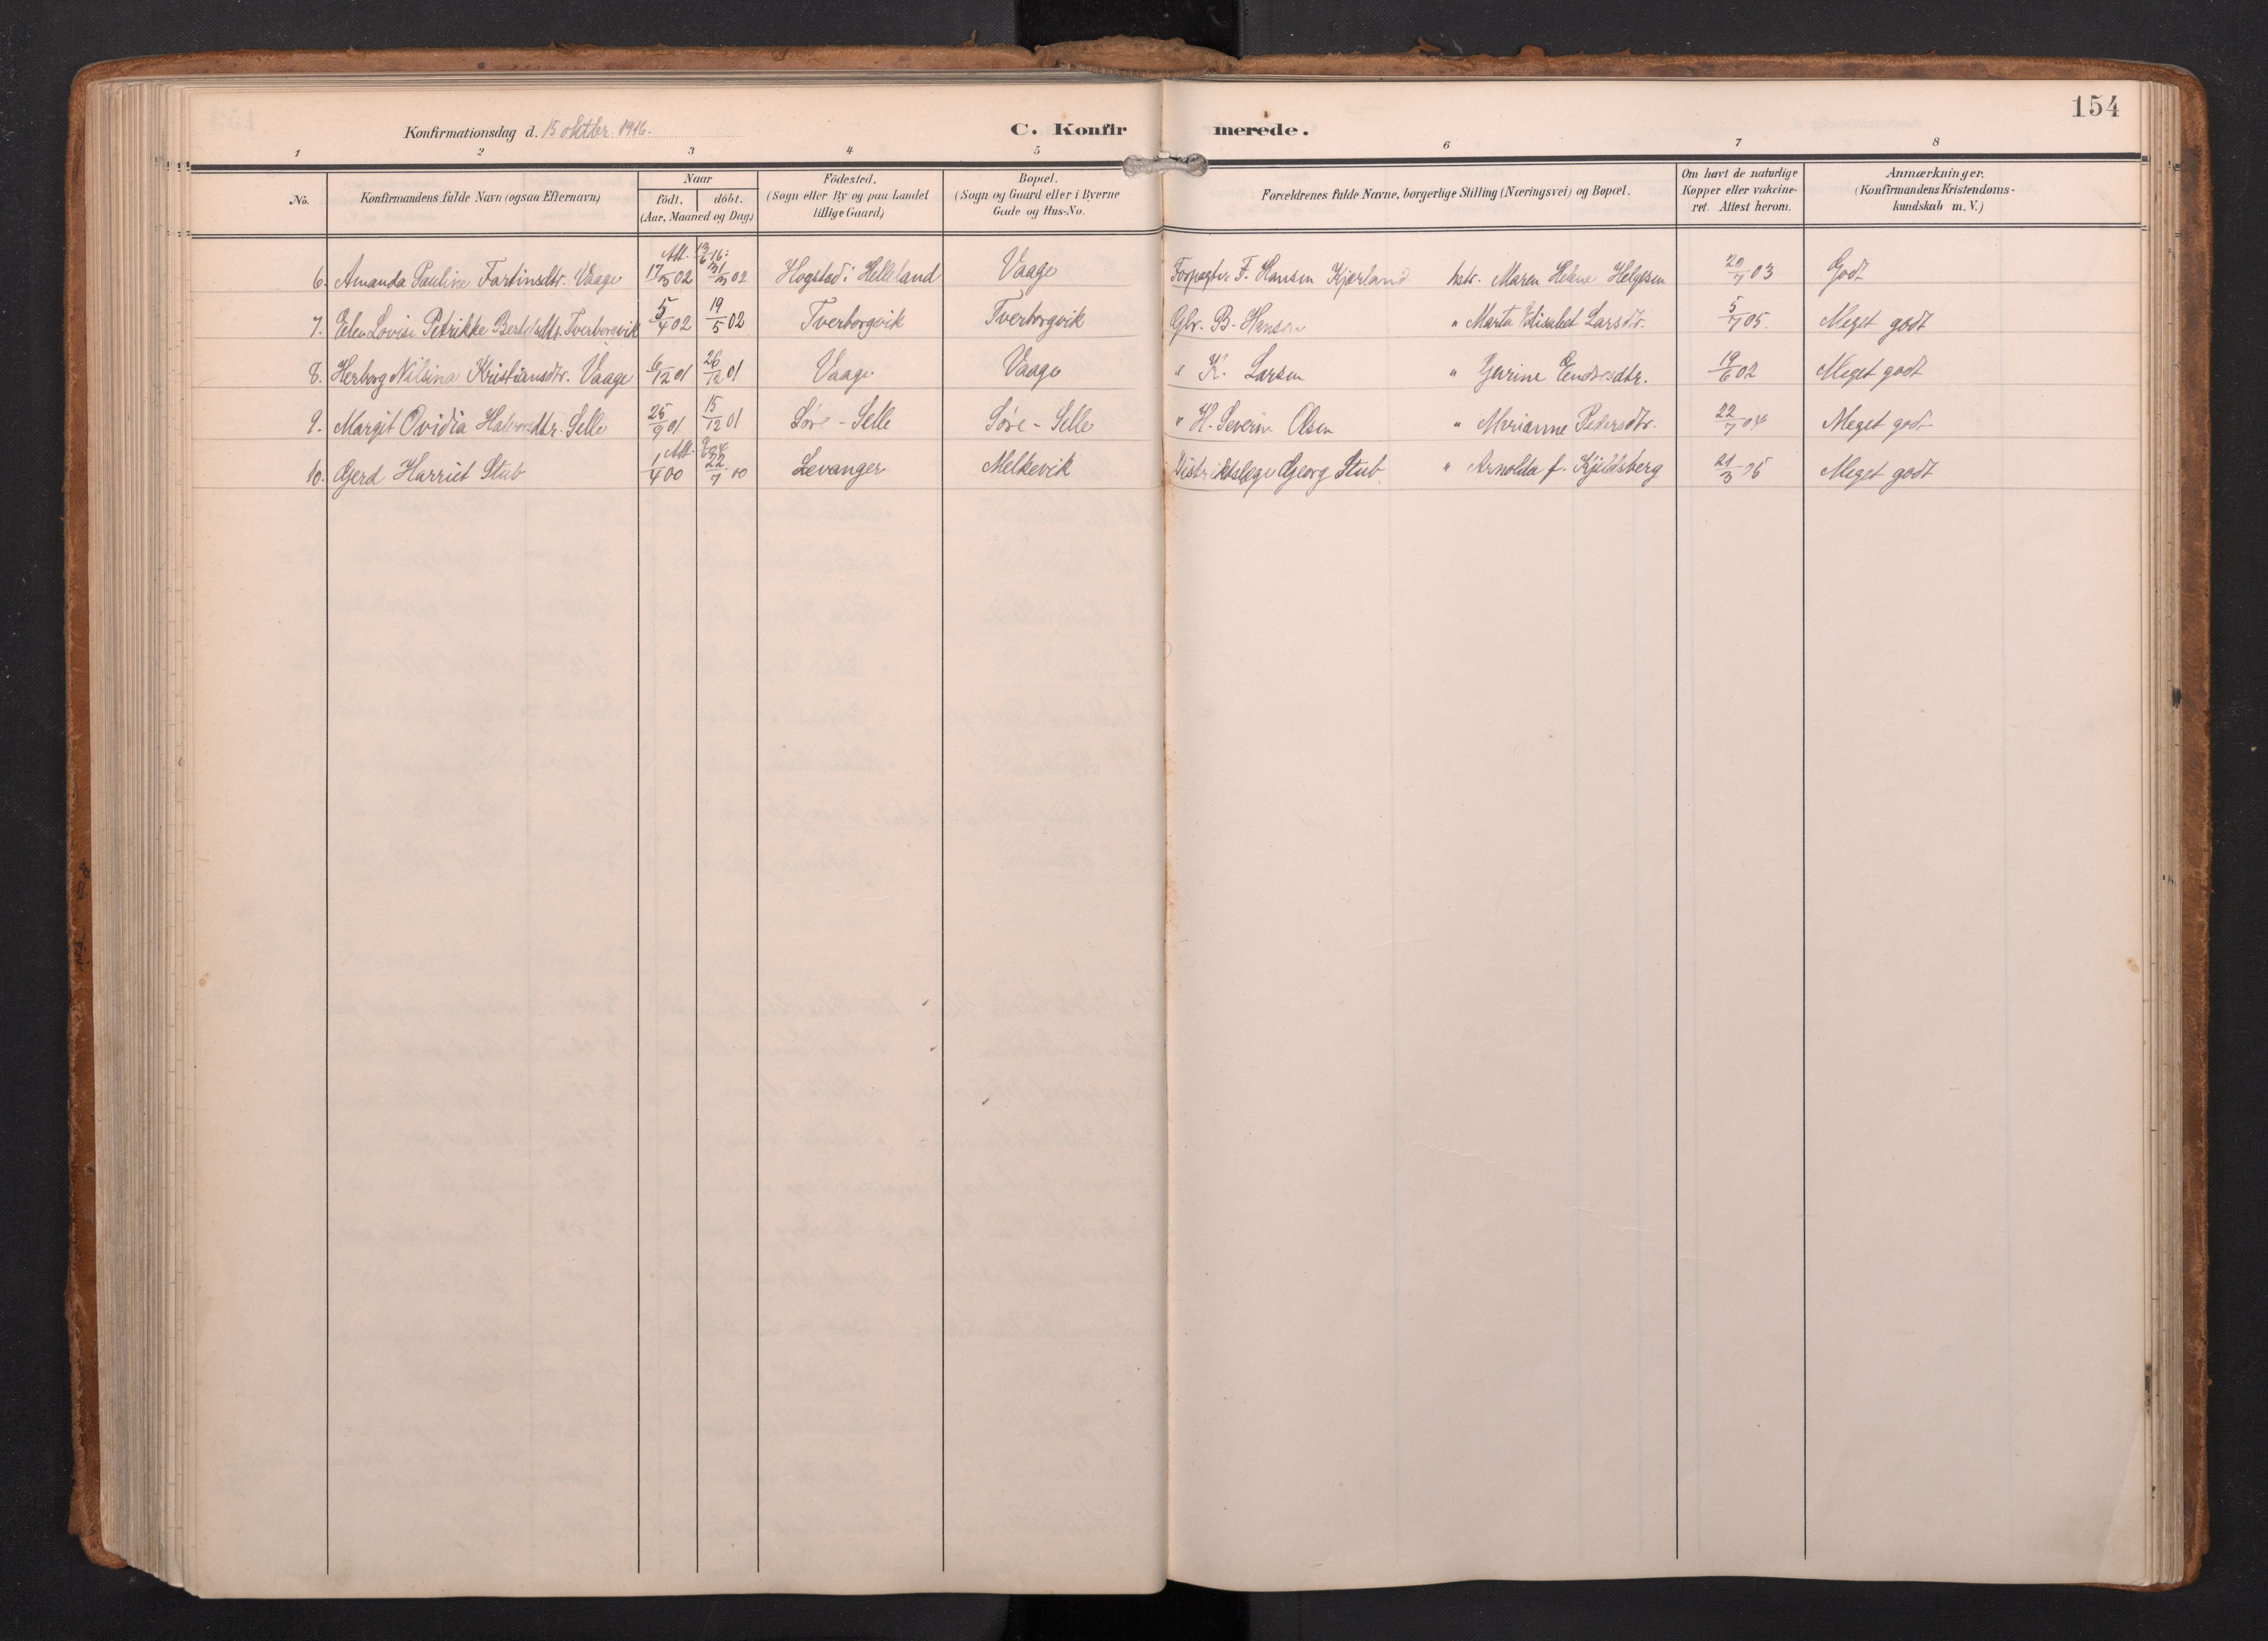 154
Konfirmationsdag d. 15 oktbr. 1916.
C. Konfirmerede.
1 2 3 4 5 6 7 8
No. Konfirmandens fulde Navn (ogsaa Efternavn) Naar födt. döbt. (Aar, Maaned og Dag) Födested. (Sogn eller By og paa Landet tillige Gaard) Bopæl. (Sogn og Gaard eller i Byerne Gade og Hus-No. Forældrenes fulde Navne, borgerlige Stilling (Næringsvei) og Bopæl. Om havt de naturlige Kopper eller vakcineret. Attest herom. Anmærkninger. (Konfirmandens Kristendomskundskab m. V.)
Att. 13/6 16:
6. Amanda Pauline Fartinsdtr. Vaage 17/3 02 31/3 02 Hogstad i Helleland Vaage Forpagter F. Hansen Kjerland hstr. Maren Helene Helgesen 20/7 03 Godt
7. Elen Lovise Petrikke Bertelsdtr. Tverborgvik 5/4 02 19/5 02 Tverborgvik Tverborgvik Gbr. B. Hansen " Marta Elisabet Larsdtr. 5/7 05. Meget godt
8. Herborg Nilsina Kristiansdtr. Vaage 6/12 01 26/12 01 Vaage Vaage " K. Larsen " Gurine Endresdtr. 19/6 02 Meget godt
9. Margit Ovidia Halvorsdtr. Selle 25/9 01 15/12 01 Søre - Selle Søre - Selle " H. Severin Olsen " Marianne Pedersdtr. 22/7 04 Meget godt
Att.
10. Gerd Harriet Stub 1/4 00 22/7 00 Levanger Melkevik Distriktslæge Georg Stub " Arnolda f. Kjeldsberg 21/3 Meget godt